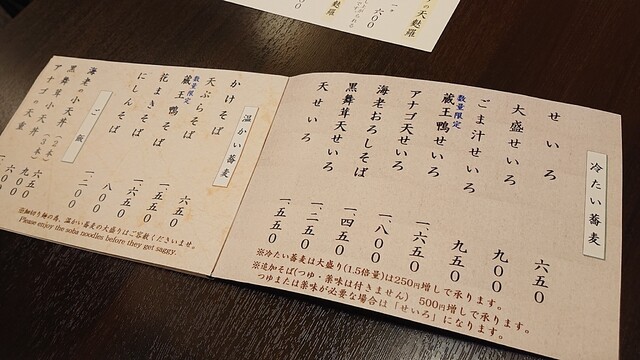 の天麩羅
六〇〇
麩羅
冷たい蕎麦
せいろ 六五〇
大盛せいろ 九〇〇
ごま汁せいろ 九五〇
数量限定
蔵王鴨せいろ 一、六五〇
アナゴ天せいろ 一、八〇〇
海老おろしそば 一、四五〇
黒舞茸天せいろ 一、二五〇
天せいろ 一、五五〇
※冷たい蕎麦は大盛り(1.5倍量)は250円増しで承ります。
※追加そば(つゆ・薬味は付きません) 500円増しで承ります。
つゆまたは薬味が必要な場合は「せいろ」になります。
温かい蕎麦
かけそば 六五〇
天ぷらそば 一、五五〇
数量限定
蔵王鴨そば 一、六五〇
花まきそば 八〇〇
にしんそば 一、二〇〇
ご飯
海老の小天丼(二本) 六五〇
黒舞茸小天丼(三本)
アナゴの天重
※細切り麺の為、温かい蕎麦の大盛りはご容赦くださいませ。
Please enjoy the soba noodles before they get saggy.